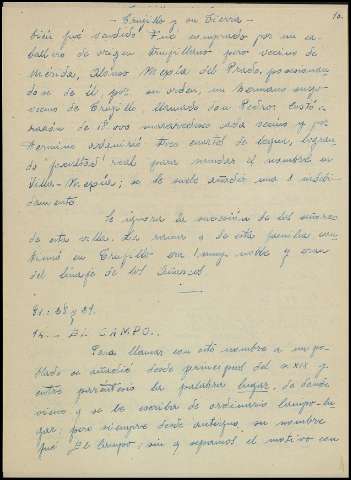 - Trujillo y su Tierra -
10.
bién fué vendido. Fué comprado por un ca-
ballero de origen trujillano pero vecino de
Mérida, Alonso Mexía del Prado, posesionan-
dose de él, por su orden, un hermano suyo
vecino de Trujillo, llamado don Pedro. Costó a
razón de 17.000 maravedises cada vecino y por
término asdmirió tres cuartos de legua, logran-
do facultad real para mudar el nombre en
Villa-Mexía; se le suele añadir una s indebi-
damente.
Se ignora la sucesión de los señores
de esta villa. La rama de esta familia con-
tinuó en Trujillo era muy noble y eran
del linaje de los Añascos.
Pl: 38 y 39.
14.- EL CAMPO.
Para llamar con este nombre a un po-
blado se añadió desde principios del s. XIX y
entre paréntesis la palabra lugar, de donde
vino y se le escriba de ordinario Campo-lu-
gar; pero siempre desde antiguo, su nombre
fué El Campo; sin q sepamos el motivo con